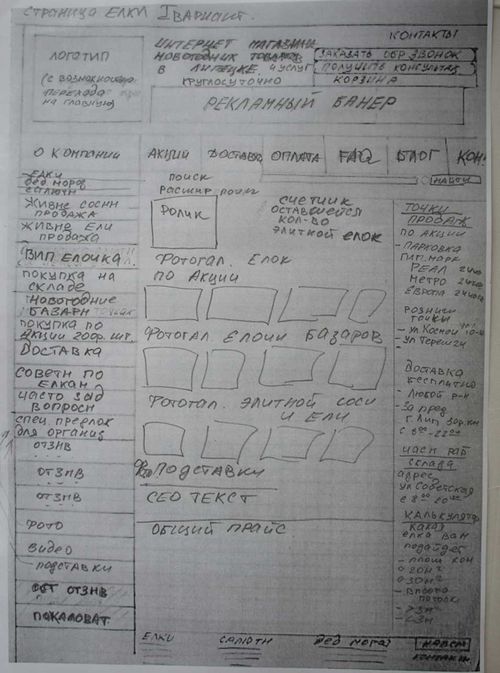 СТРАНИЦА ЕЛКИ I ВАРИАНТ.
КОНТАКТЫ
ЛОГОТИП
(С ВОЗМОЖНОСТЬЮ
ПЕРЕХОДА
НА ГЛАВНУЮ)
ИНТЕРНЕТ МАГАЗИН
НОВОГОДНИХ ТОВАРОВ
В ЛИПЕЦКЕ, И УСЛУГ
КРУГЛОСУТОЧНО
ЗАКАЗАТЬ ОБР ЗВОНОК
ПОЛУЧИТЬ КОНСУЛЬТАЦ
КОРЗИНА
РЕКЛАМНЫЙ БАНЕР
О КОМПАНИИ
АКЦИИ
ДОСТАВКА
ОПЛАТА
FAQ
БЛОГ
КОН
ПОИСК
РАСШИР ПОИСК
НАЙТИ
ЕЛКИ
ДЕД МОРОЗ
САЛЮТЫ
ЖИВЫЕ СОСНЫ
ПРОДАЖА
ЖИВЫЕ ЕЛИ
ПРОДАЖА
ВИП ЕЛОЧКА
ПОКУПКА НА
СКЛАДЕ
НОВОГОДНИЕ
БАЗАРЫ
ПОКУПКА ПО
АКЦИИ 200р. ШТ.
ДОСТАВКА
СОВЕТЫ ПО
ЕЛКАМ
ЧАСТО ЗАД
ВОПРОСЫ
СПЕЦ. ПРЕДЛОЖ
ДЛЯ ОРГАНИЗ
ОТЗЫВ
ОТЗЫВ
ОТЗЫВ
ФОТО
ВИДЕО
ПОДСТАВКИ
ОСТ ОТЗЫВ
ПОЖАЛОВАТ
РОЛИК
СЧЕТЧИК
ОСТАВШЕЙСЯ
КОЛ-ВО
ЭЛИТНОЙ ЕЛОК
ФОТОГАЛ. ЕЛОК
ПО АКЦИИ
ФОТОГАЛ ЕЛОЧН БАЗАРОВ
ФОТОГАЛ. ЭЛИТНОЙ СОСН
И ЕЛИ
ПОДСТАВКИ
СЕО ТЕКСТ
ОБЩИЙ ПРАЙС
ТОЧКИ
ПРОДАЖ
ПО АКЦИИ
- ПАРКОВКА
ГИП. МАРК
РЕАЛ
МЕТРО
ЕВРОПА
РОЗНИЧН
ТОЧКИ
- УЛ КОСМОН
- УЛ ТЕРЕШК
ДОСТАВКА
БЕСПЛАТНО
- ЛЮБОЙ Р-Н
- ЗА ПРЕД
Г. ЛИП
ЧАСЫ РАБ
СКЛАДА
АДРЕС
УЛ СОВЕТСКАЯ
КАЛЬКУЛЯТОР
КАКАЯ
ЕЛКА ВАМ
ПОДОЙДЕТ
- ПЛОЩ КОМ
20 М²
30 М²
- ВЫСОТА
ПОТОЛК
- >3М
- <3М
ЕЛКИ
САЛЮТЫ
ДЕД МОРОЗ
НАВЕРХ
КОНТАКТЫ